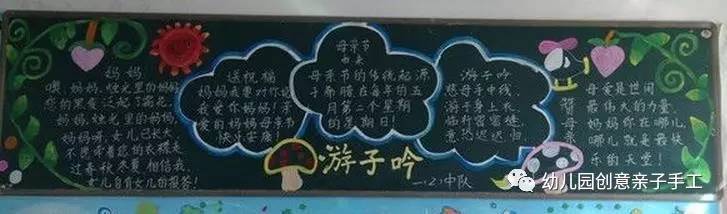 妈妈
噢，妈妈，烛光里的妈妈
您的黑发泛起了霜花
妈妈，烛光里的妈妈
妈妈呀，女儿已长大
不愿牵着您的衣襟走
过春秋冬夏相信我，
女儿自有女儿的报答！
送祝福
妈妈我要对你说
我爱你妈妈！亲
爱的妈妈母亲节
快乐安康！
母亲节
由来
母亲节的传统起源
于希腊在每年的五
月第二个星期
的星期日！
游子吟
慈母手中线，
游子身上衣，
临行密密缝，
意恐迟迟归。
母爱是世间
最伟大的力量，
妈妈你在哪儿，
哪儿就是最快
乐的天堂！
游子吟
一(2)中队
幼儿园创意亲子手工